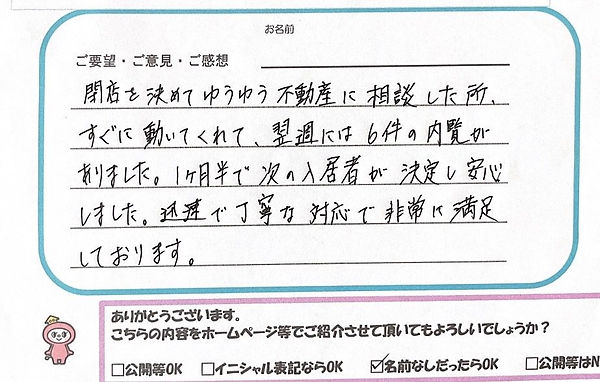 お名前
ご要望・ご意見・ご感想
閉店を決めてゆうゆう不動産に相談した所、
すぐに動いてくれて、翌週には6件の内覧が
ありました。1ヶ月半で次の入居者が決定し安心
しました。迅速で丁寧な対応で非常に満足
しております。
ありがとうございます。
こちらの内容をホームページ等でご紹介させて頂いてもよろしいでしょうか？
□公開等OK □イニシャル表記ならOK ☑名前なしだったらOK □公開等はN